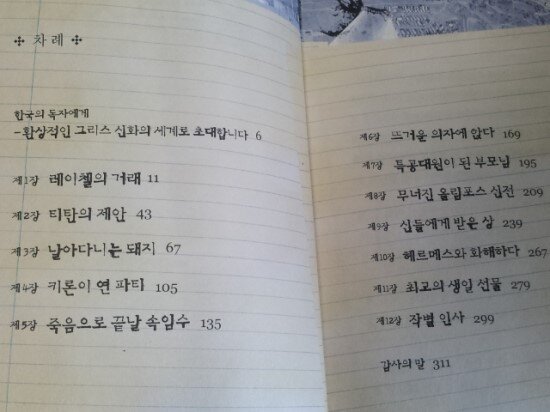 ✣ 차례 ✣
한국의 독자에게
-환상적인 그리스 신화의 세계로 초대합니다 6
제1장 레이첼의 거래 11
제2장 티탄의 제안 43
제3장 날아다니는 돼지 67
제4장 키론이 연 파티 105
제5장 죽음으로 끝날 속임수 135
제6장 뜨거운 의자에 앉다 169
제7장 특공대원이 된 부모님 195
제8장 무너진 올림포스 신전 209
제9장 신들에게 받은 상 239
제10장 헤르메스와 화해하다 267
제11장 최고의 생일 선물 279
제12장 작별 인사 299
감사의 말 311